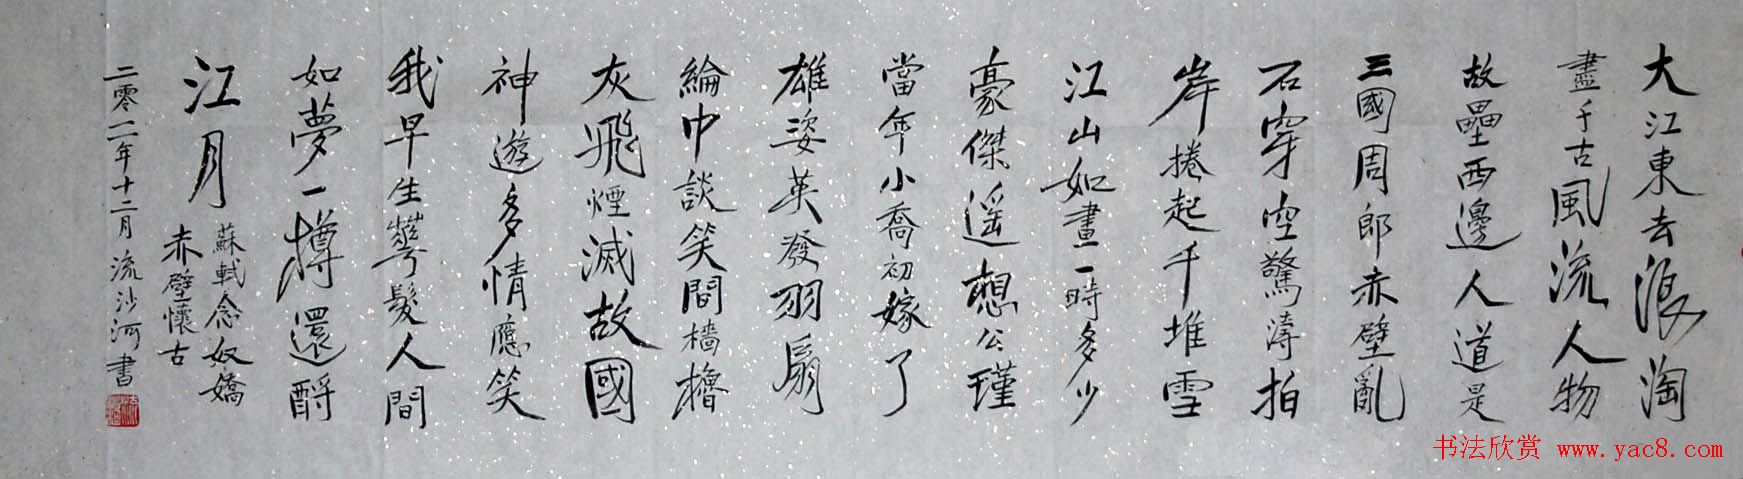 大江東去浪淘
盡千古風流人物
故壘西邊人道是
三國周郎赤壁亂
石穿空驚濤拍
岸捲起千堆雪
江山如畫一時多少
豪傑遥想公瑾
當年小喬初嫁了
雄姿英發羽扇
綸巾談笑間檣櫓
灰飛煙滅故國
神遊多情應笑
我早生華髮人間
如夢一樽還酹
江月
蘇軾念奴嬌
赤壁懷古
二零一一年十二月流沙河書
书法欣赏 www.yac8.com